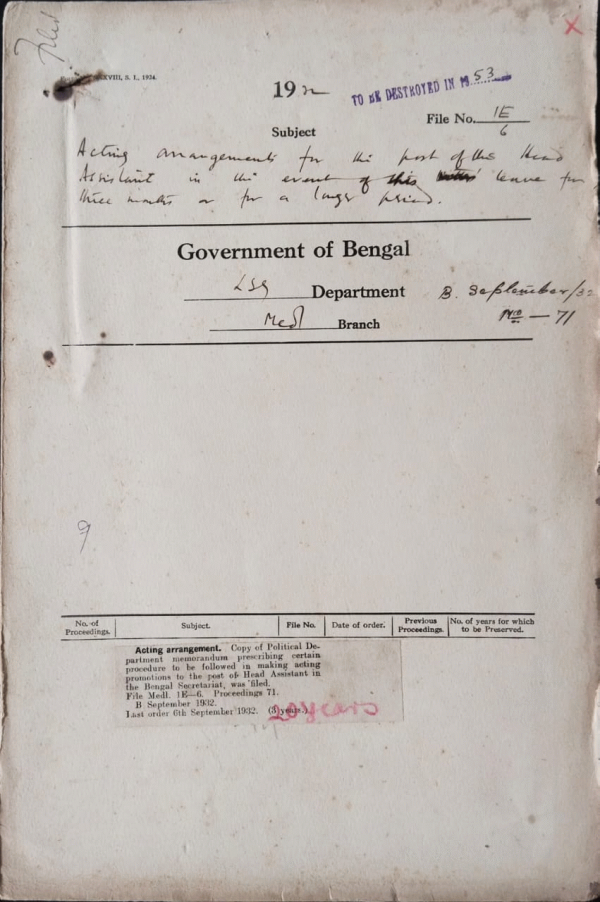 Filed
XXVIII, S. I., 1924.
1932
TO BE DESTROYED IN 1953
File No. 1E/6
Subject
Acting arrangements for the post of the Head
Assistant in the event of this leave for
three months or for a longer period.
Government of Bengal
LSG Department
B. September/32
Medl Branch
No — 71
9
No. of Proceedings.
Subject.
File No.
Date of order.
Previous Proceedings.
No. of years for which to be Preserved.
Acting arrangement. Copy of Political De-
partment memorandum prescribing certain
procedure to be followed in making acting
promotions to the post of Head Assistant in
the Bengal Secretariat, was filed.
File Medl. 1E—6. Proceedings 71.
B September 1932.
Last order 6th September 1932. (3 years.)
20 years